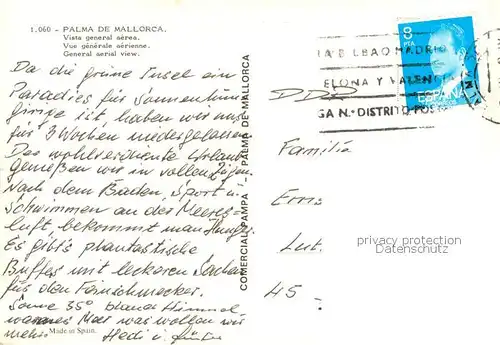 1.060 - PALMA DE MALLORCA.
Vista general aérea.
Vue générale aérienne.
General aerial view.
Da die grüne Insel ein
Paradies für Sonnenhun-
grige ist, haben wir uns
für 3 Wochen niedergelassen.
Den wohlverdiente Urlaub
genießen wir in vollen Zügen.
Nach dem Baden, Sport u.
Schwimmen an der Meeres-
luft, bekommt man Hunger.
Es gibt's phantastische
Buffes mit leckeren Sachen
für den Feinschmecker.
Sonne 35° blauer Himmel
warmes Meer was wollen wir
mehr. Hedi u.
Made in Spain.
COMERCIAL PAMPA - PALMA DE MALLORCA
BILBAO MADRID
ELONA Y VALENCI
GA N.º DISTRITO POST
8
PTA
ESPAÑA
Familia
45 -
privacy protection
Datenschutz